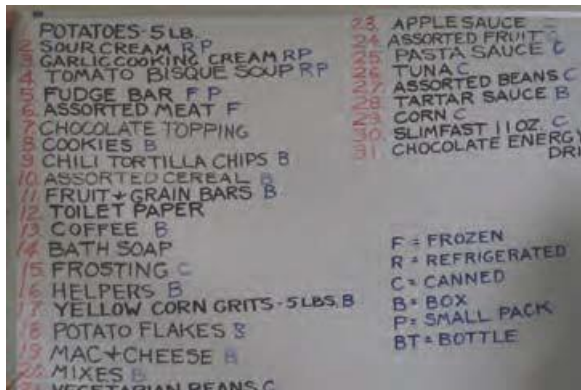 1. POTATOES-5LB.
2. SOUR CREAM RP
3. GARLIC COOKING CREAM RP
4. TOMATO BISQUE SOUP RP
5. FUDGE BAR F P
6. ASSORTED MEAT F
7. CHOCOLATE TOPPING
8. COOKIES B
9. CHILI TORTILLA CHIPS B
10. ASSORTED CEREAL B
11. FRUIT + GRAIN BARS B
12. TOILET PAPER
13. COFFEE B
14. BATH SOAP
15. FROSTING C
16. HELPERS B
17. YELLOW CORN GRITS-5LBS. B
18. POTATO FLAKES
19. MAC + CHEESE B
20. MIXES B
VEGETARIAN BEANS C
23. APPLESAUCE
24. ASSORTED FRUIT
25. PASTA SAUCE C
26. TUNA C
27. ASSORTED BEANS C
28. TARTAR SAUCE B
29. CORN C
30. SLIMFAST 11 OZ. C
31. CHOCOLATE ENERGY
DRI
F = FROZEN
R = REFRIGERATED
C = CANNED
B = BOX
P = SMALL PACK
BT = BOTTLE